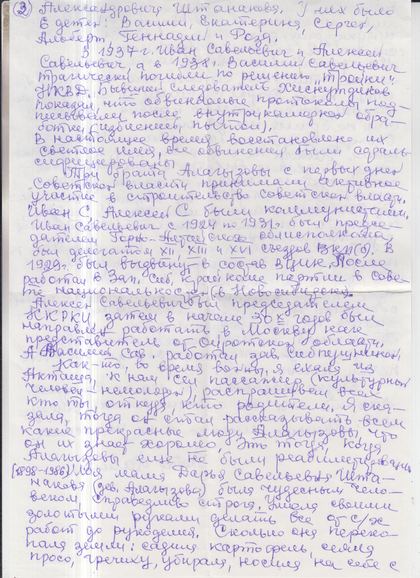 ③ Александровича Штанакова. У них было
6 детей: Василий, Екатерина, Сергей,
Альберт, Геннадий и Роза.
В 1937 г. Иван Савельевич и Алексей
Савельевич, а в 1938 г. Василий Савельевич
трагически погибли по решению "тройки"
НКВД. Бывший следователь
показал, что обвиняемые протоколы под-
писывали после внутрикамерной обра-
ботки (избиений, пыток).
В настоящее время восстановлено их
светлое имя, все обвинения были
Три брата Алагызовы с первых дней
Советской власти принимали активное
участие в строительстве советской власти.
Иван С. Алексей С. были коммунистами.
Иван Савельевич с 1924 по 1931 г. был предсе-
дателем Горно-Алтайского облисполкома
был делегатом XII, XIII и XVI съездов ВКП(б). В
1929 г. был выдвинут в состав ВЦИК. После
работал в Зап. Сиб. крайкоме партии в сове-
те национальностей (в Новосибирске).
Алексей Савельевич был председателем
затем в начале 30х годов был
направлен работать в Москву как
представитель от Ойротской области.
А Василий Сав. работал зав.
Как-то, во время войны, я ехала из
Акташа, к нам сел пассажир (культурный
человек - немолодой), расспрашивал всех
кто ты, откуда, кто родители. Я ска-
зала, тогда он стал рассказывать всем
какие прекрасные люди Алагызовы, что
он их знает хорошо, а это тогда, когда
Алагызовы ещё не были реабилитированы
(1898-1986) Моя мама Дарья Савельевна Шта-
накова (дев. Алагызова) была чудесным чело-
веком справедливо строга, умела своими
золотыми руками делать всё от с/х
работ до рукоделия. Сколько она переко-
пала земли: садила картофель, сеяла
просо, гречиху, убирала, носила на себе с